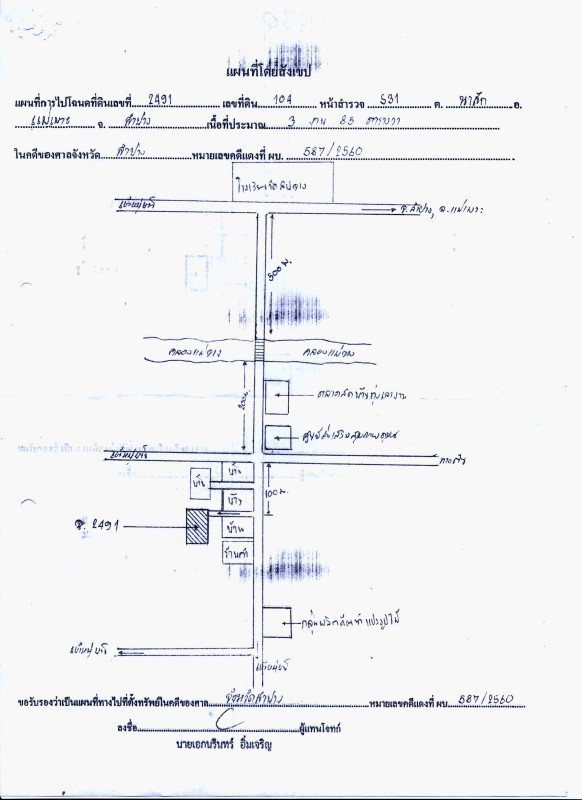 แผนที่โดยสังเขป
แผนที่การไปโฉนดที่ดินเลขที่ 2491 เลขที่ดิน 104 หน้าสำรวจ 531 ต. นาสัก อ.
แม่เมาะ จ. ลำปาง เนื้อที่ประมาณ 3 งาน 85 ตารางวา
ในคดีของศาลจังหวัด ลำปาง หมายเลขคดีแดงที่ ผบ. 587/2560
เข้าหมู่บ้าน
จ.ลำปาง, อ.แม่เมาะ
500 ม.
คลองแม่จาง
คลองแม่จาง
200 ม.
เข้าหมู่บ้าน
ทางตัน
บ้าน
บ้าน
100 ม.
บ้าน
ฉ. 2491
บ้าน
ร้านค้า
กลุ่มผลิตภัณฑ์แปรรูปไม้
เข้าหมู่บ้าน
เข้าหมู่บ้าน
ขอรับรองว่าเป็นแผนที่ทางไปที่ตั้งทรัพย์ในคดีของศาล จังหวัดลำปาง หมายเลขคดีแดงที่ ผบ. 587/2560
ลงชื่อ ผู้แทนโจทก์
นายเอกนรินทร์ อิ่มเจริญ